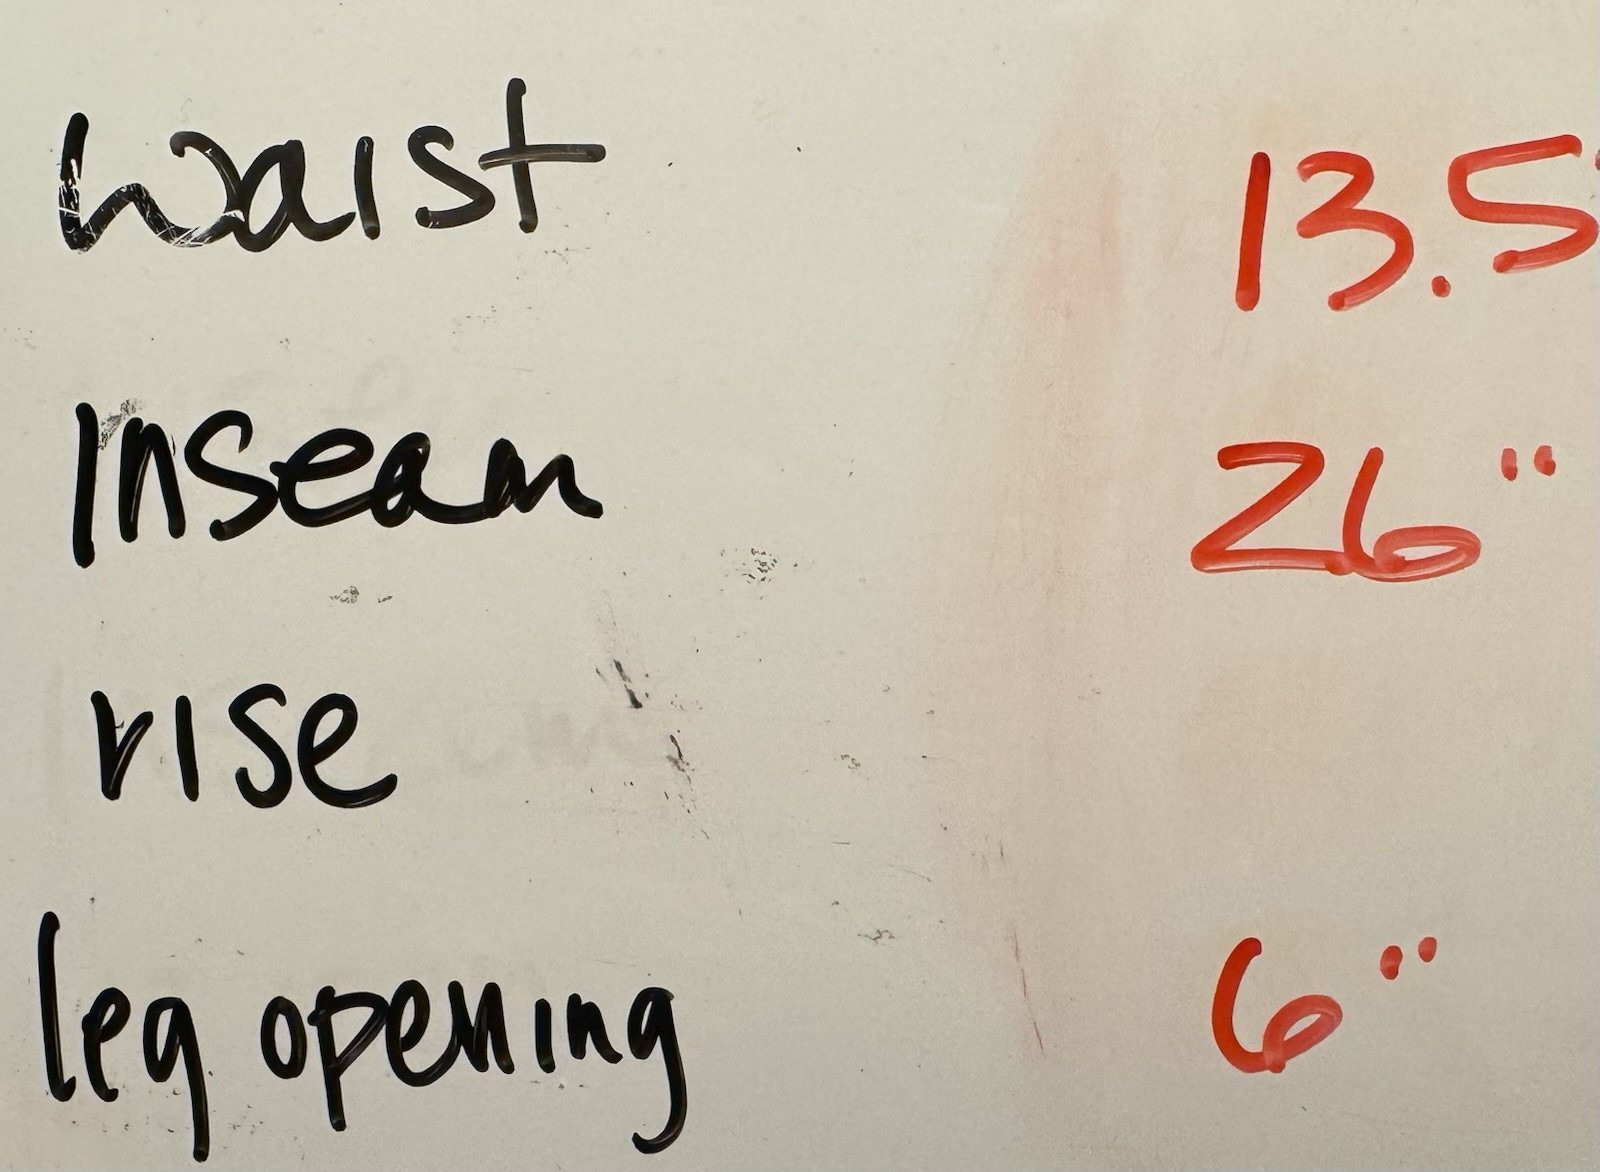 waist 13.5"
inseam 26"
rise
leg opening 6"